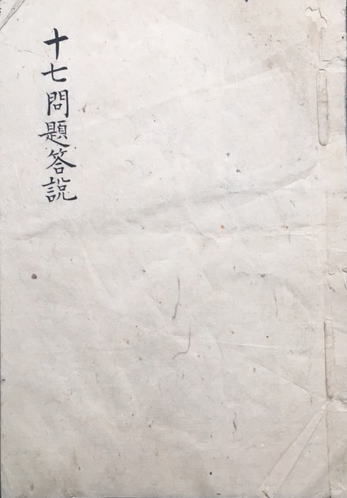 十七問題答説